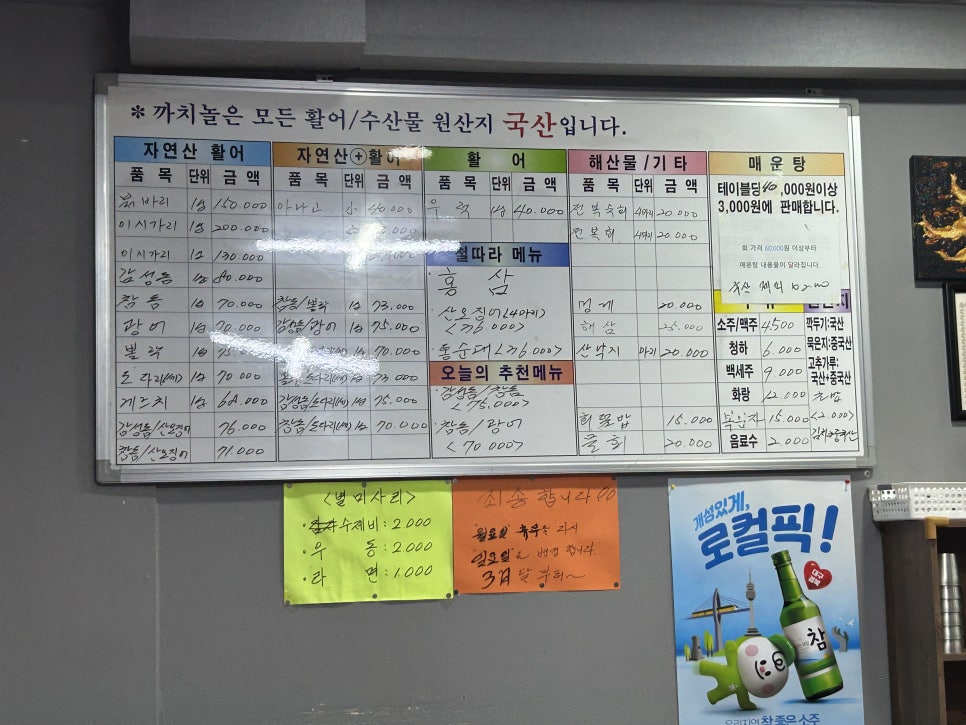 * 까치놀은 모든 활어/수산물 원산지 국산입니다.
자연산 활어
품 목 단위 금 액
붉바리 1kg 150.000
이시가리 1kg 200.000
이시가리 130.000
감성돔 80.000
참돔 1kg 70.000
광어 1kg 70.000
볼락 1kg
도다리(세) 1kg 70.000
게르치 1kg 68.000
감성돔/산오징어 76.000
참돔/산오징어 71.000
자연산+활어
품 목 단위 금 액
아나고 小 40.000
참돔/볼락 1kg 73.000
감성돔/광어 1kg 75.000
1kg 70.000
73.000
감성돔/도다리(세) 1kg 75.000
참돔/도다리(세) 1kg 70.000
활 어
품 목 단위 금 액
우럭 1kg 40.000
절따라 메뉴
홍 삼
· 산오징어<4마리>
<76.000>
오늘의 추천메뉴
· 감성돔/참돔
<75.000>
· 참돔/광어
<70.000>
해산물/기타
품 목 단위 금 액
전복숙회 4마리 20.000
전복회 4마리 20.000
멍게 20.000
해삼 25.000
산낙지 마리 20.000
회덮밥 15.000
물회 20.000
매운탕
테이블당40,000원이상
3,000원에 판매합니다.
회 가격 60,000원 이상부터
매운탕 내용물이 달라집니다.
소주/맥주 4500
청하 6.000
백세주 9.000
화랑 12.000
복분자 15.000
음료수 2.000
깍두기:국산
묵은지:중국산
고추가루:
국산+중국산
<2.000>
<별미사리>
· 수제비: 2.000
· 우 동: 2.000
· 라 면: 1.000
죄송합니다 00
월요일 휴무를 다시
일요일로 변경 합니다.
3월 달 부터~
개성있게,
로컬픽!
대구
경북
참
우리지역 참 좋은 소주